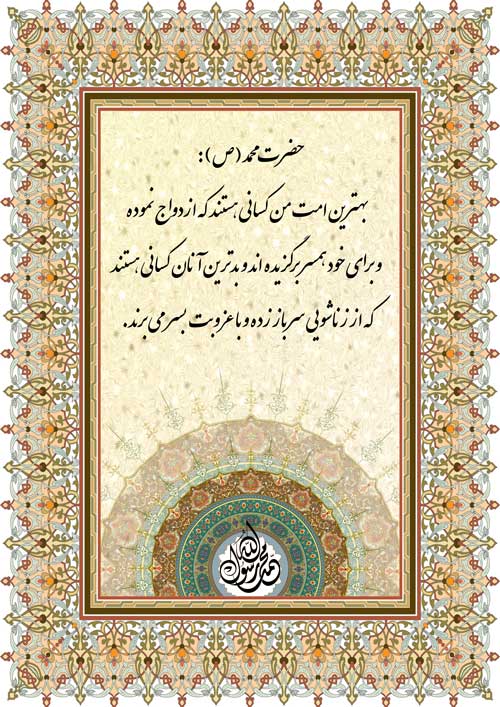 حضرت محمد (ص):
بهترین امت من کسانی هستند که ازدواج نموده
و برای خود همسر برگزیده اند و بدترین آنان کسانی هستند
که از زناشویی سرباز زده و با عزوبت بسر می برند.
محمد رسول الله